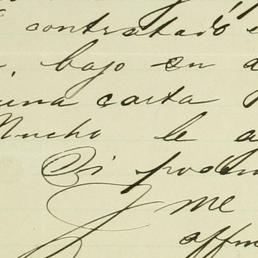 contratado e
bajo su a
una carta
Mucho le a
Si podem
me
affm